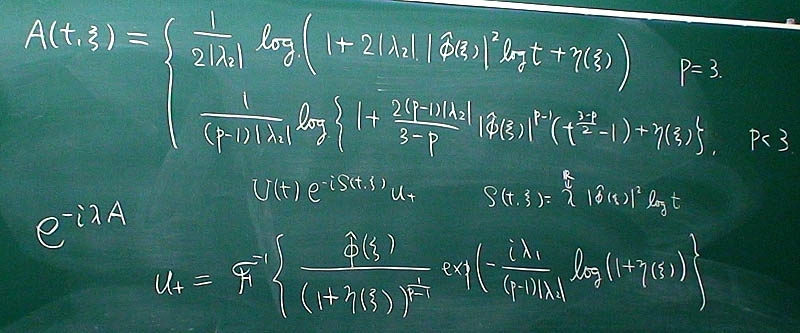 A(t,ξ) = { 1/(2|λ₂|) log.(1+2|λ₂|.|Φ̂(ξ)|² log t + η(ξ)) p=3.
1/((p-1)|λ₂|) log{1+ 2(p-1)|λ₂|/(3-p) |Φ̂(ξ)|^{p-1} (t^{(3-p)/2} -1)+η(ξ)}, p<3
U(t) e^{-iS(t,ξ)} u₊ S(t,ξ) = λ |Φ̂(ξ)|² log t
e^{-iλA}
u₊ = F⁻¹ { Φ̂(ξ)/(1+η(ξ))^{1/(p-1)} exp(- iλ₁/((p-1)|λ₂|) log(1+η(ξ)) }